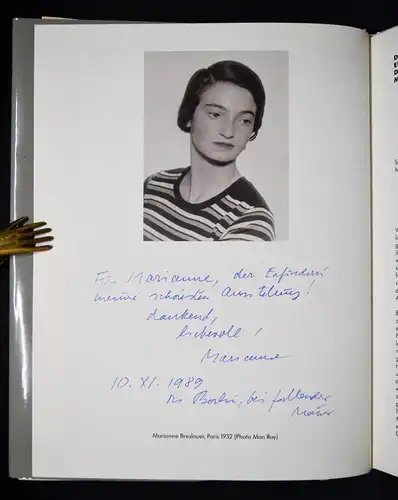 Für Marianne, der Erfinderin
meiner schönsten Ausstellung!
dankend,
liebevoll!
Marianne
10. XI. 1989
in Berlin, bei fallender
Mauer
Marianne Breslauer, Paris 1932 (Photo Man Ray)